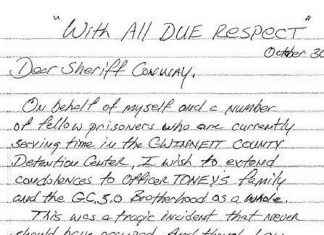 "With All DUE RESPECT"
October 30
Dear Sheriff Conway,
On behalf of myself and a number
of fellow prisoners who are currently
serving time in the GWINNETT COUNTY
Detention Center, I wish to extend
condolences to Officer TONEY'S family
and the G.C.S.O Brotherhood as a whole.
This was a tragic incident that never
should have occurred. And though